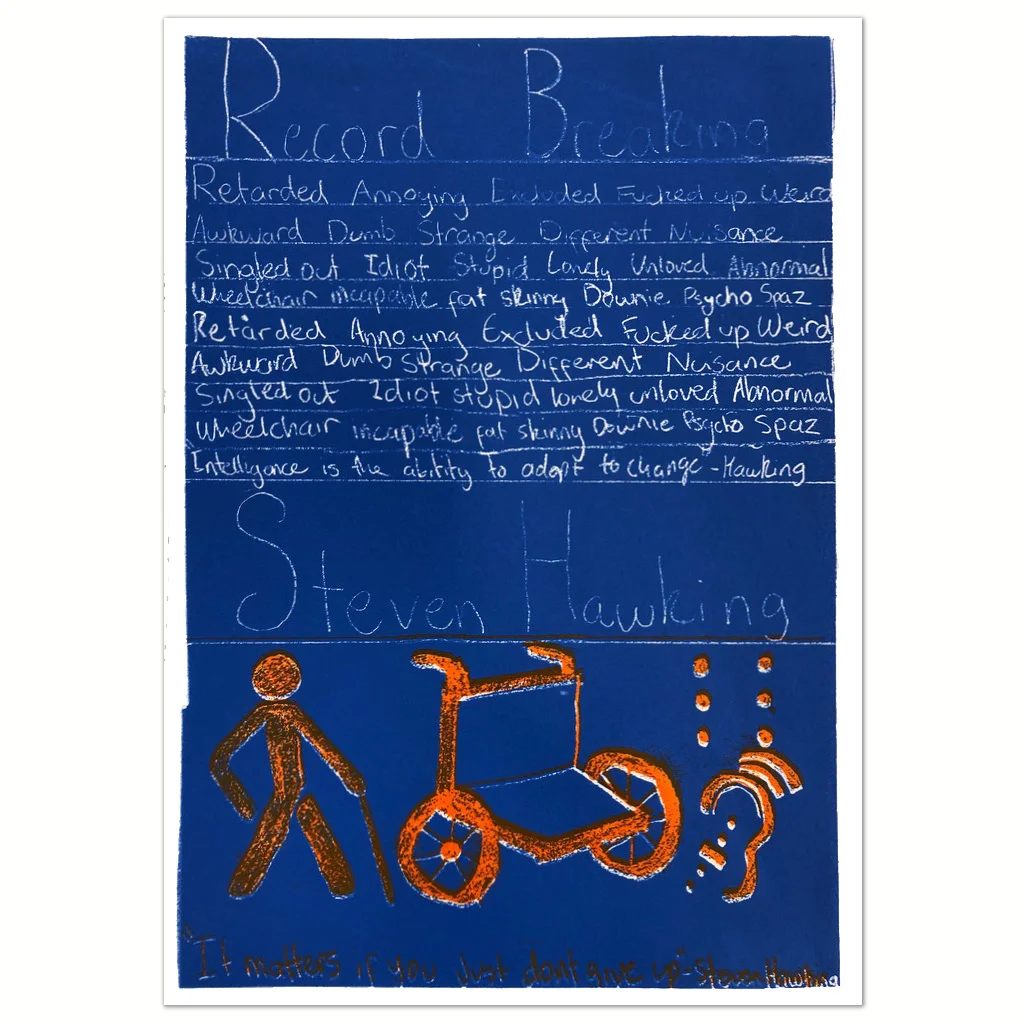 Record Breaking
Retarded Annoying Excluded Fucked up Weird
Awkward Dumb Strange Different Nuisance
Singled out Idiot Stupid Lonely Unloved Abnormal
Wheelchair incapable fat skinny Downie Psycho Spaz
Retarded Annoying Excluded Fucked up Weird
Awkward Dumb Strange Different Nuisance
Singled out Idiot stupid lonely unloved Abnormal
Wheelchair incapable fat skinny Downie Psycho Spaz
"Intelligence is the ability to adapt to change" - Hawking
Steven Hawking
"It matters if you Just dont give up" - Steven Hawking